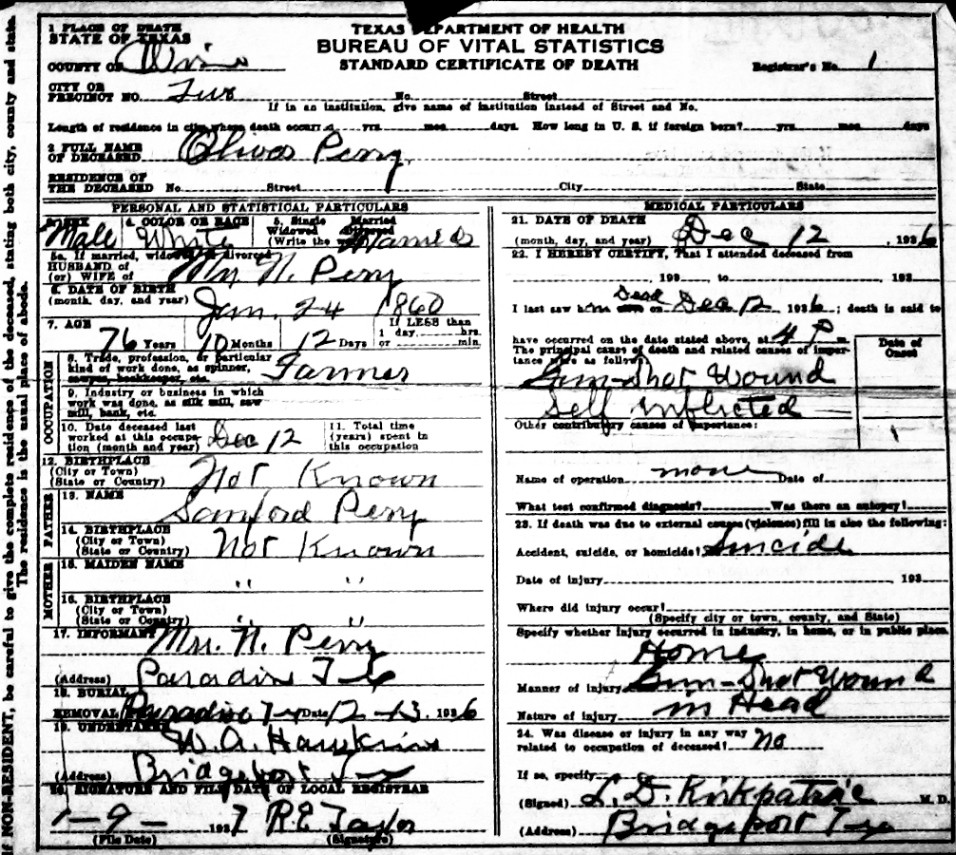 1 PLACE OF DEATH
STATE OF TEXAS
COUNTY OF Wise
CITY OR
PRECINCT NO. Two No. Street
TEXAS DEPARTMENT OF HEALTH
BUREAU OF VITAL STATISTICS
STANDARD CERTIFICATE OF DEATH
Registrar's No. 1
If in an institution, give name of institution instead of Street and No.
Length of residence in city where death occurs yrs. mos. days. How long in U. S. if foreign born? yrs. mos. days
2 FULL NAME
OF DECEASED Oliver Perry
RESIDENCE OF
THE DECEASED No. Street City State
PERSONAL AND STATISTICAL PARTICULARS
3. SEX 4. COLOR OR RACE 5. Single Married
Widowed Divorced
(Write the
Male White Married
5a. If married, widowed or divorced
HUSBAND of
(or) WIFE of Mrs. N. Perry
6. DATE OF BIRTH
(month, day, and year) Jan. 24 1860
7. AGE 76 Years 10 Months 12 Days If LESS than
1 day hrs.
or min.
OCCUPATION
8. Trade, profession, or particular
kind of work done, as spinner,
sawyer, bookkeeper, etc. Farmer
9. Industry or business in which
work was done, as silk mill, saw
mill, bank, etc.
10. Date deceased last
worked at this occupa-
tion (month and year) Dec 12
11. Total time
(years) spent in
this occupation
12. BIRTHPLACE
(City or Town)
(State or Country) Not Known
FATHER
13. NAME Sanford Perry
14. BIRTHPLACE
(City or Town)
(State or Country) Not Known
MOTHER
15. MAIDEN NAME " "
16. BIRTHPLACE
(City or Town)
(State or Country) " "
17. INFORMANT Mrs. N. Perry
(Address) Paradise Tex
18. BURIAL
REMOVAL Paradise Tex Date 12-13. 1936
19. UNDERTAKER W. A. Hawkins
(Address) Bridgeport Tex
20. SIGNATURE AND FILE DATE OF LOCAL REGISTRAR
1-9- 1937 R.E. Taylor
(File Date) (Signature)
MEDICAL PARTICULARS
21. DATE OF DEATH
(month, day, and year) Dec 12, 1936
22. I HEREBY CERTIFY, That I attended deceased from
193 to 193
I last saw h Dead on Dec 12 1936; death is said to
have occurred on the date stated above, at 4 P m.
The principal cause of death and related causes of impor-
tance were as follows:
Date of
Onset
Gun-Shot Wound
Self inflicted
Other contributory causes of importance:
Name of operation none Date of
What test confirmed diagnosis? Was there an autopsy?
23. If death was due to external causes (violence) fill in also the following:
Accident, suicide, or homicide? Suicide
Date of injury 193
Where did injury occur?
(Specify city or town, county, and State)
Specify whether injury occurred in industry, in home, or in public place.
Home
Manner of injury Gun-Shot Wound
Nature of injury in Head
24. Was disease or injury in any way
related to occupation of deceased? No
If so, specify
(Signed) L. D. Kirkpatric M. D.
(Address) Bridgeport Tex
If NON-RESIDENT, be careful to give the complete residence of the deceased, stating both city, county and state.
The residence is the usual place of abode.